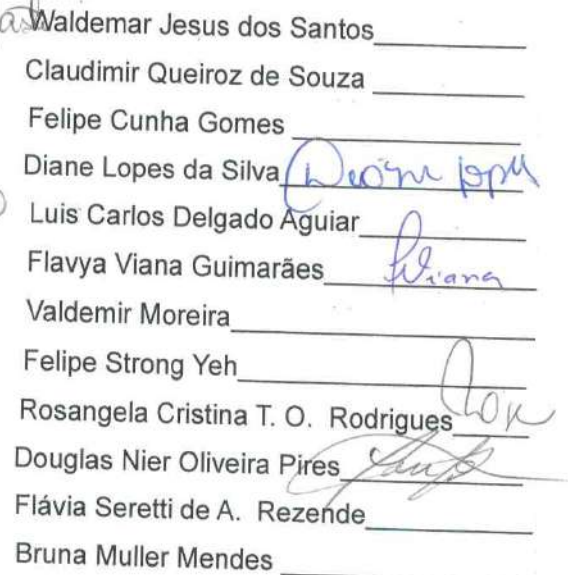 Waldemar Jesus dos Santos
Claudimir Queiroz de Souza
Felipe Cunha Gomes
Diane Lopes da Silva
Luis Carlos Delgado Aguiar
Flavya Viana Guimarães Viana
Valdemir Moreira
Felipe Strong Yeh
Rosangela Cristina T. O. Rodrigues
Douglas Nier Oliveira Pires
Flávia Seretti de A. Rezende
Bruna Muller Mendes